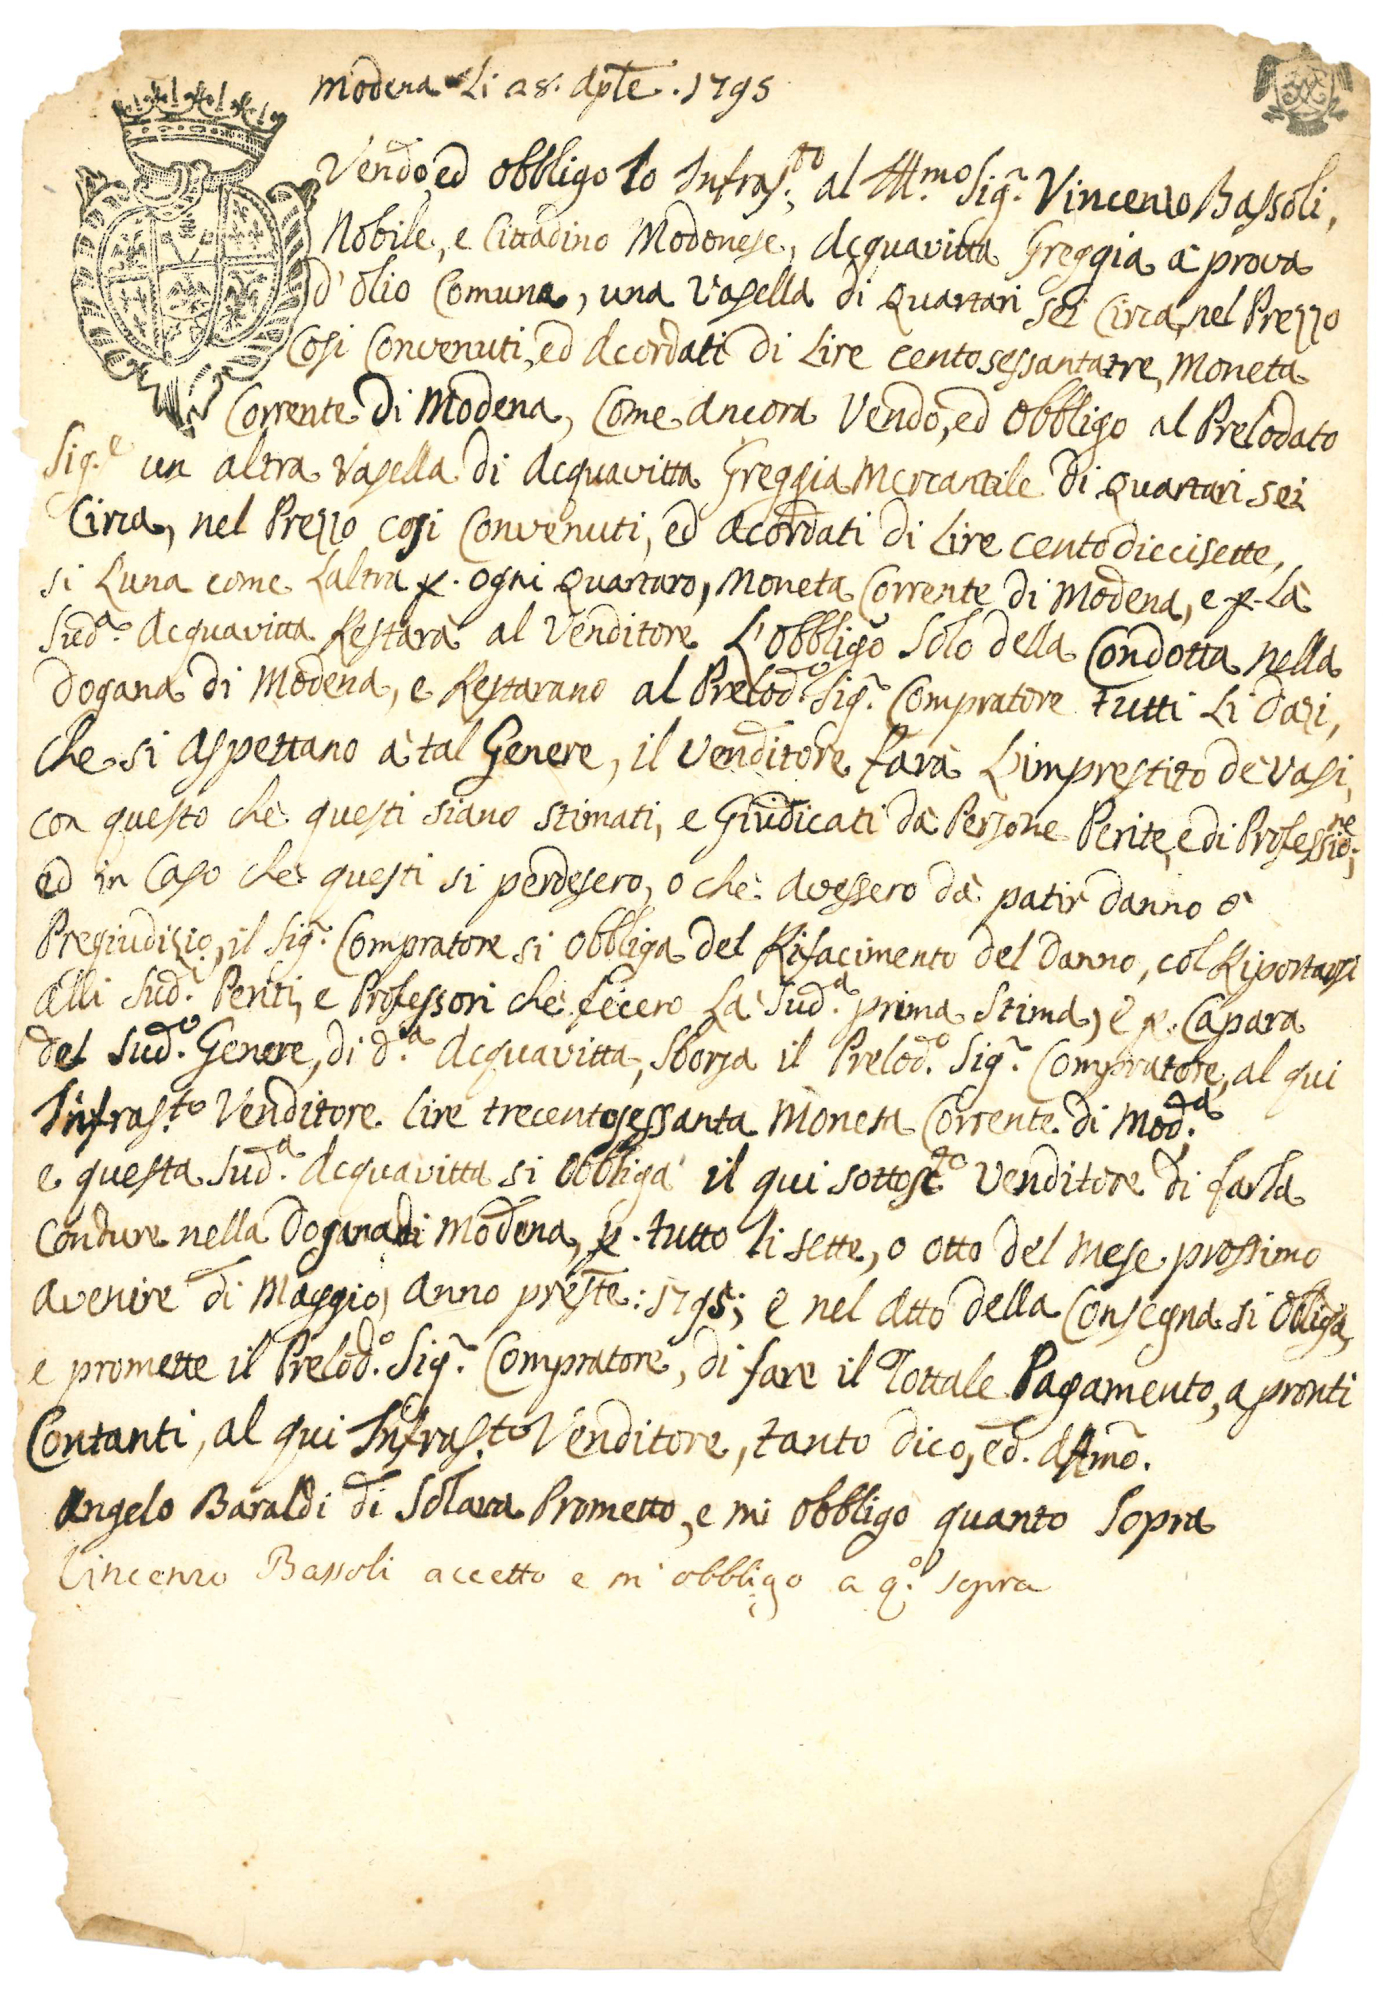 Modena Li 28. Aple. 1795
Vendo, ed obbligo Io Infras.to al Ill.mo Sig.r Vincenzo Bassoli,
Nobile, e Cittadino Modonese, Acquavitta Greggia à prova
d'olio Comune, una Vasella di Quartari sei Circa, nel Prezzo
Cosi Convenuti, ed Acordati di Lire centosessantatre, Moneta
Corrente di Modena, Come Ancora Vendo, ed obbligo al Prelodato
Sig.e un altra Vasella di Acquavitta Greggia Mercantile di Quartari sei
Circa, nel Prezzo cosi Convenuti, ed Acordati di Lire centodiecisette,
si Luna come Laltra p. ogni Quartaro, Moneta Corrente di Modena, e p. Là
Sud.a Acquavitta Restarà al Venditore L'obbligo Solo della Condotta nella
Dogana di Modena, e Restarano al Prelod.o Sig.r Compratore tutti Li Dazi,
Che si aspettano à tal Genere, il Venditore farà L'imprestito de Vasi,
con questo chè questi siano stimati, e Giudicati dà Persone Perite, e di Professio.ne;
ed in Caso chè questi si perdesero, o chè Avessero dà patir danno ò
Pregiudizio, il Sig.r Compratore si obbliga del Rifacimento del Danno, col Riportarsi
alli Sud.i Periti, e Professori chè fecero Là Sud.a prima Stima, e p. Capara
del Sud.o Genere, di d.a Acquavitta, Sborsa il Prelod.o Sig.r Compratore, al qui
Infras.to Venditore Lire trecentosessanta Moneta Corrente di Mod.a
e questa Sud.a Acquavitta si obbliga il qui sottosc.to Venditore di farla
Condure nella Dogana di Modena, p. tutto li sette, o otto del Mese prossimo
Avenire di Maggio, Anno preste: 1795; e nel Atto della Consegna si obliga,
e promette il Prelod.o Sig.r Compratore, di fare il Tottale Pagamento, a pronti
Contanti, al qui Infras.to Venditore, tanto dico, ed Affmo.
Angelo Baraldi di Solara Prometto, e mi obbligo quanto Sopra
Vincenzo Bassoli accetto e mi obbligo a q.o sopra